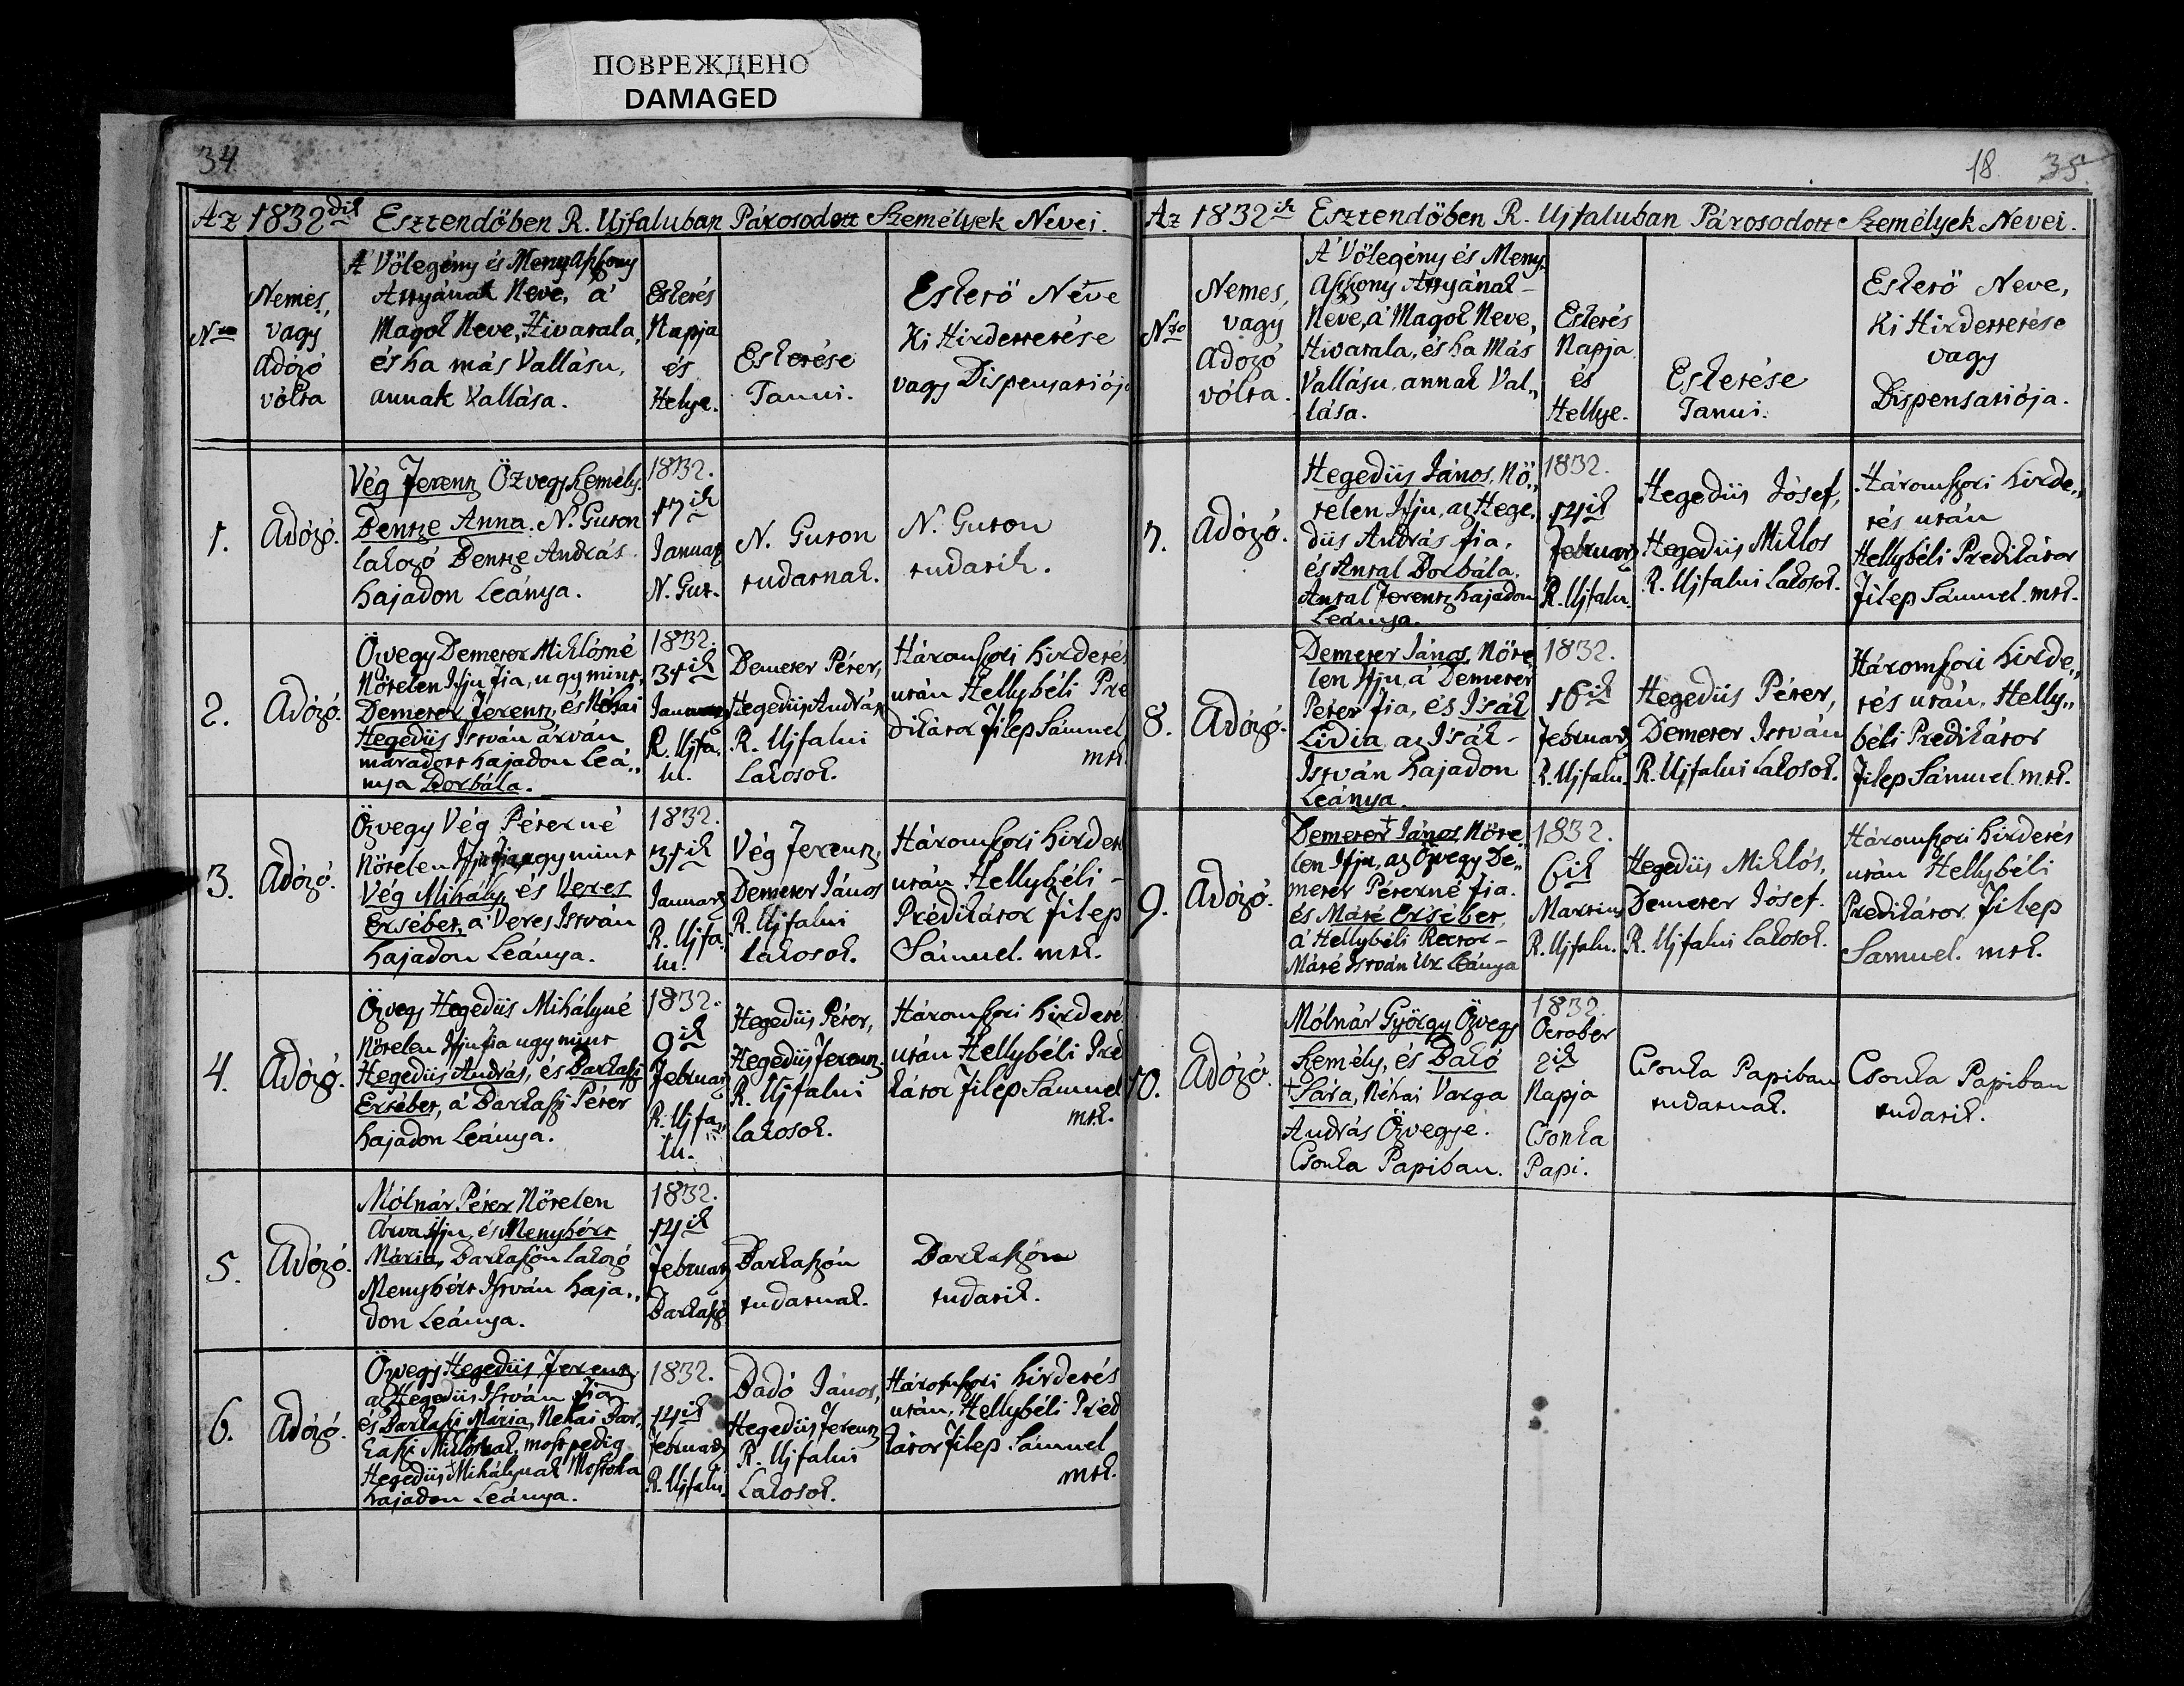 ПОВРЕЖДЕНО
DAMAGED
34.
Az 1832dik Esztendőben R. Ujfaluban Párosodott Személyek Nevei.
Nro
Nemes,
vagy
Adózó
vólta
A' Vőlegény és Menyaszszony
Attyának Neve, a'
Magok Neve, Hivatala,
és ha más Vallásu,
annak Vallása.
Esketés
Napja
és
Helye.
Esketése
Tanui.
Eskető Neve
Ki Hirdettetése
vagy Dispensatiója
1.
Adózó.
Vég Ferentz Özvegy Személy.
Dentze Anna. N. Guton
lakozó Dentze András
hajadon Leánya.
1832.
17ik
Januar
N. Gut.
N. Guton
tudatnak.
N. Guton
tudatik.
2.
Adózó.
Özvegy Demeter Miklósné
Nőtelen Ifju fia, ugymint,
Demeter Ferentz, és Néhai
Hegedüs István árván
maradott hajadon Leá„
nya Borbála.
1832.
31ik
Januar
R. Ujfa„
lu.
Demeter Péter,
Hegedüs András
R. Ujfalui
Lakosok.
Háromszori hirdetés
után Hellybéli Pre
dikátor Filep Sámuel
mtk.
3.
Adózó.
Özvegy Vég Péterné
Nőtelen Ifju fia, ugy mint
Vég Mihály, és Veres
Ersébet, a' Veres István
hajadon Leánya.
1832.
31ik
Januar
R. Ujfa„
lu.
Vég Ferentz,
Demeter János
R. Ujfalui
Lakosok.
Háromszori hirdet
után Hellybéli -
Prédikátor Filep
Sámuel. mtk.
4.
Adózó.
Özvegy Hegedüs Mihályné
Nőtelen Ifju fia ugymint
Hegedüs András, és Barkaszi
Ersébet, a' Barkaszi Péter
hajadon Leánya.
1832.
9ik
Februar
R. Ujfa„
lu.
Hegedüs Péter,
Hegedüs Ferentz
R. Ujfalui
lakosok.
Háromszori hirdeté
után Hellybéli Pred
kátor Filep Sámuel
mtk.
5.
Adózó.
Mólnár Péter Nőtelen
Árva Ifju, és Menyhért
Mária, Barkaszón lakozó
Menyhért István haja„
don Leánya.
1832.
14ik
Februar
Barkaszó
Barkaszón
tudatnak.
Barkaszón
tudatik.
6.
Adózó.
Özvegy Hegedüs Ferentz,
a' Hegedüs István fia
és Barkaszi Mária, Néhai Bar„
kaszi Miklósnak, most pedig
Hegedüs Mihálynak Mostoha
hajadon Leánya.
1832.
14ik
Februar
R. Ujfalu.
Dadó János,
Hegedüs Ferentz
R. Ujfalui
Lakosok.
Háromszori hirdetés
után, Hellybéli Préd
kátor Filep Sámuel
mtk.
18. 35.
Az 1832ik Esztendőben R. Ujfaluban Párosodott Személyek Nevei.
Nro
Nemes,
vagy
Adózó
vólta.
A' Vőlegény és Meny„
aszszony Attyának -
Neve, a' Magok Neve,
Hivatala, és ha Más
Vallásu, annak Val„
lása.
Esketés
Napja
és
Hellye.
Esketése
Tanui.
Eskető Neve,
Ki Hirdettetése
vagy
Dispensatiója.
7.
Adózó.
Hegedüs János, Nő„
telen Ifju, az Hege„
düs András fia,
és Antal Borbála,
Antal Ferentz hajadon
Leánya.
1832.
14ik
Februar
R. Ujfalu.
Hegedüs Jósef,
Hegedüs Miklos
R. Ujfalui Lakosok.
Háromszori hirde„
tés után
Hellybéli Predikátor
Filep Sámuel. mtk.
8.
Adózó.
Demeter János, Nőte„
len Ifju, a' Demeter
Péter fia, és Isák
Lidia, az Isák -
István hajadon
Leánya.
1832.
16ik
Februar
R. Ujfalu.
Hegedüs Péter,
Demeter István
R. Ujfalui Lakosok.
Háromszori hirde„
tés után, Helly„
béli Predikátor
Filep Sámuel mtk.
9.
Adózó.
Demeter János, Nőte„
len Ifju, az Özvegy De„
meter Péterné fia.
és Máté Ersébet,
a' Hellybéli Rector -
Máté István Ur Leánya
1832.
6ik
Martius
R. Ujfalu.
Hegedüs Miklós,
Demeter Jósef.
R. Ujfalui Lakosok.
Háromszori hirdetés
után Hellybéli
Predikátor Filep
Samuel. mtk.
10.
Adózó.
Mólnár György Özvegy
Személy, és Bakó
Sára, Néhai Varga
András Özvegye.
Csonka Papiban.
1832.
October
2ik
Napja
Csonka
Papi.
Csonka Papiban
tudatnak.
Csonka Papiban
tudatik.